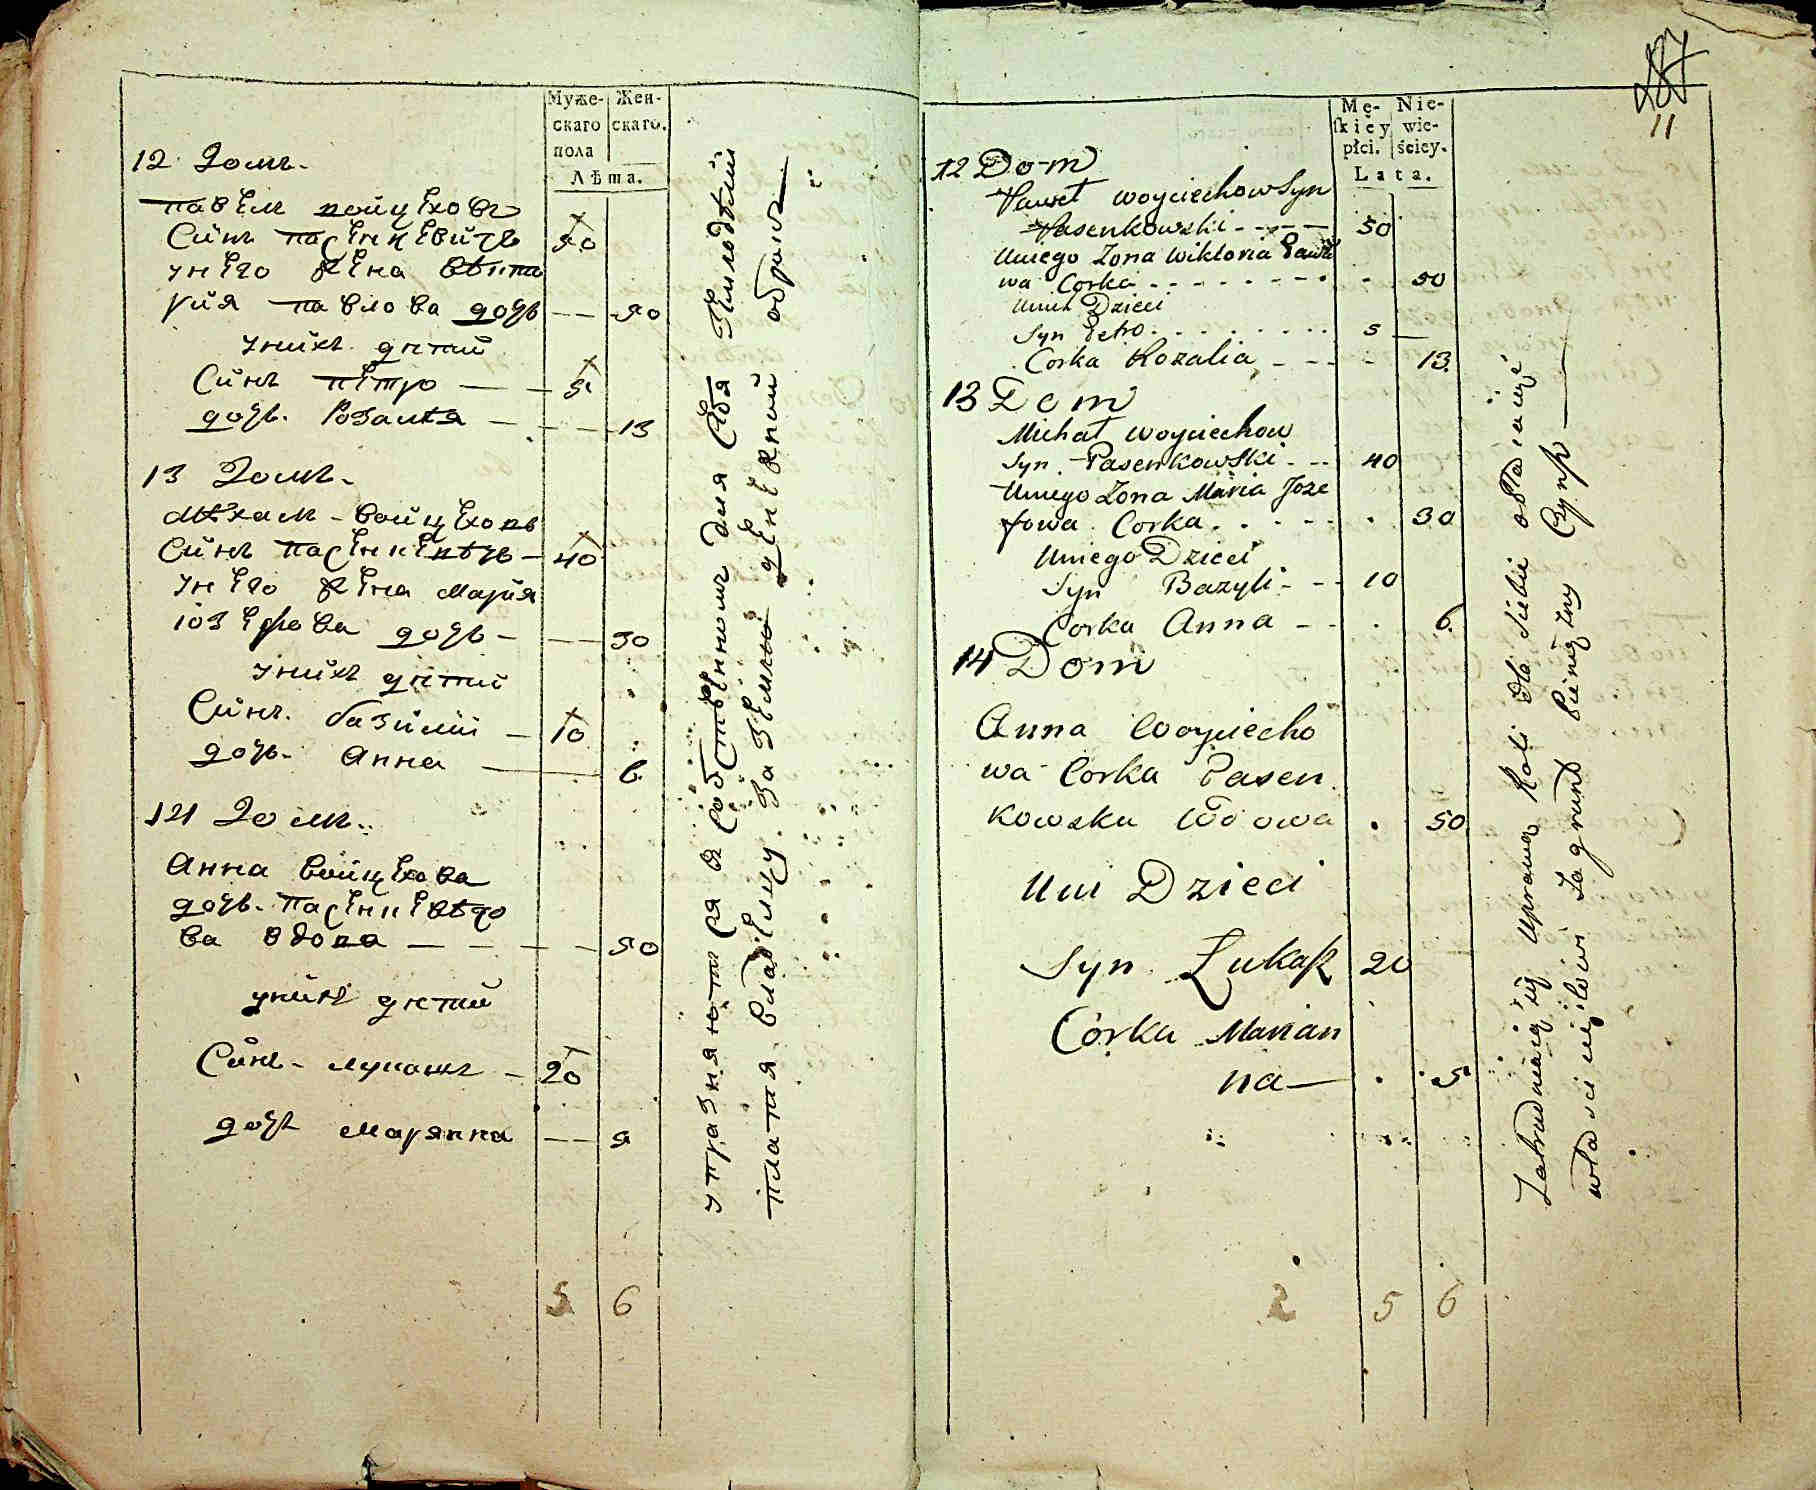 Муже-
скаго
пола
Жен-
скаго.
Лѣта.
12 Домъ.
павел войцеховъ
Синъ пасенкевичъ 50
унего жена викто
рия павлова дочь — — 50
унихъ дѣтий
Синъ петро — — 5
дочь. Розалия — — — 13
13 Домъ.
Михал - войцеховъ
Синъ пасенкевичъ — 40
унего жена Мария
іозефова дочь — — — 30
унихъ дѣтий
Синъ. базилій — 10
дочь. Анна — — 6
14 Домъ.
Анна войцехова
дочь. пасенкевичо
ва вдова — — — — 50
унихъ дѣтий
Синъ - лукашъ — 20
дочь Марянна — — 5
5 6
упразняются в собственномъ для себя
платя владелцу. За землю денежний оброкъ
187
11
Mę-
skiey
płci.
Nie-
wie-
ściey.
Lata.
12 Dom
Paweł woyciechow Syn
Pasenkowski - - - - 50
Uniego Zona Wiktoria Pawło
wa Corka - - - - - - - - 50
Unich Dzieci
Syn Petro - - - - - - - 5
Corka Rozalia - - - - 13
13 Dom
Michał woyciechow
Syn Pasenkowski - - - 40
Uniego Zona Maria Joze
fowa Corka - - - - - - 30
Uniego Dzieci
Syn Bazyli - - - 10
Corka Anna - - . 6
14 Dom
Anna Woyciecho
wa Corka Pasen
kowska Wdowa . 50
Uni Dzieci
Syn Łukasz 20
Corka Marian
na — . 5
2 5 6
Zatrudniaią się uprawą Roli dla siebie opłaciaiąc
właścicielowi Za grunt pieniężny Czynsz